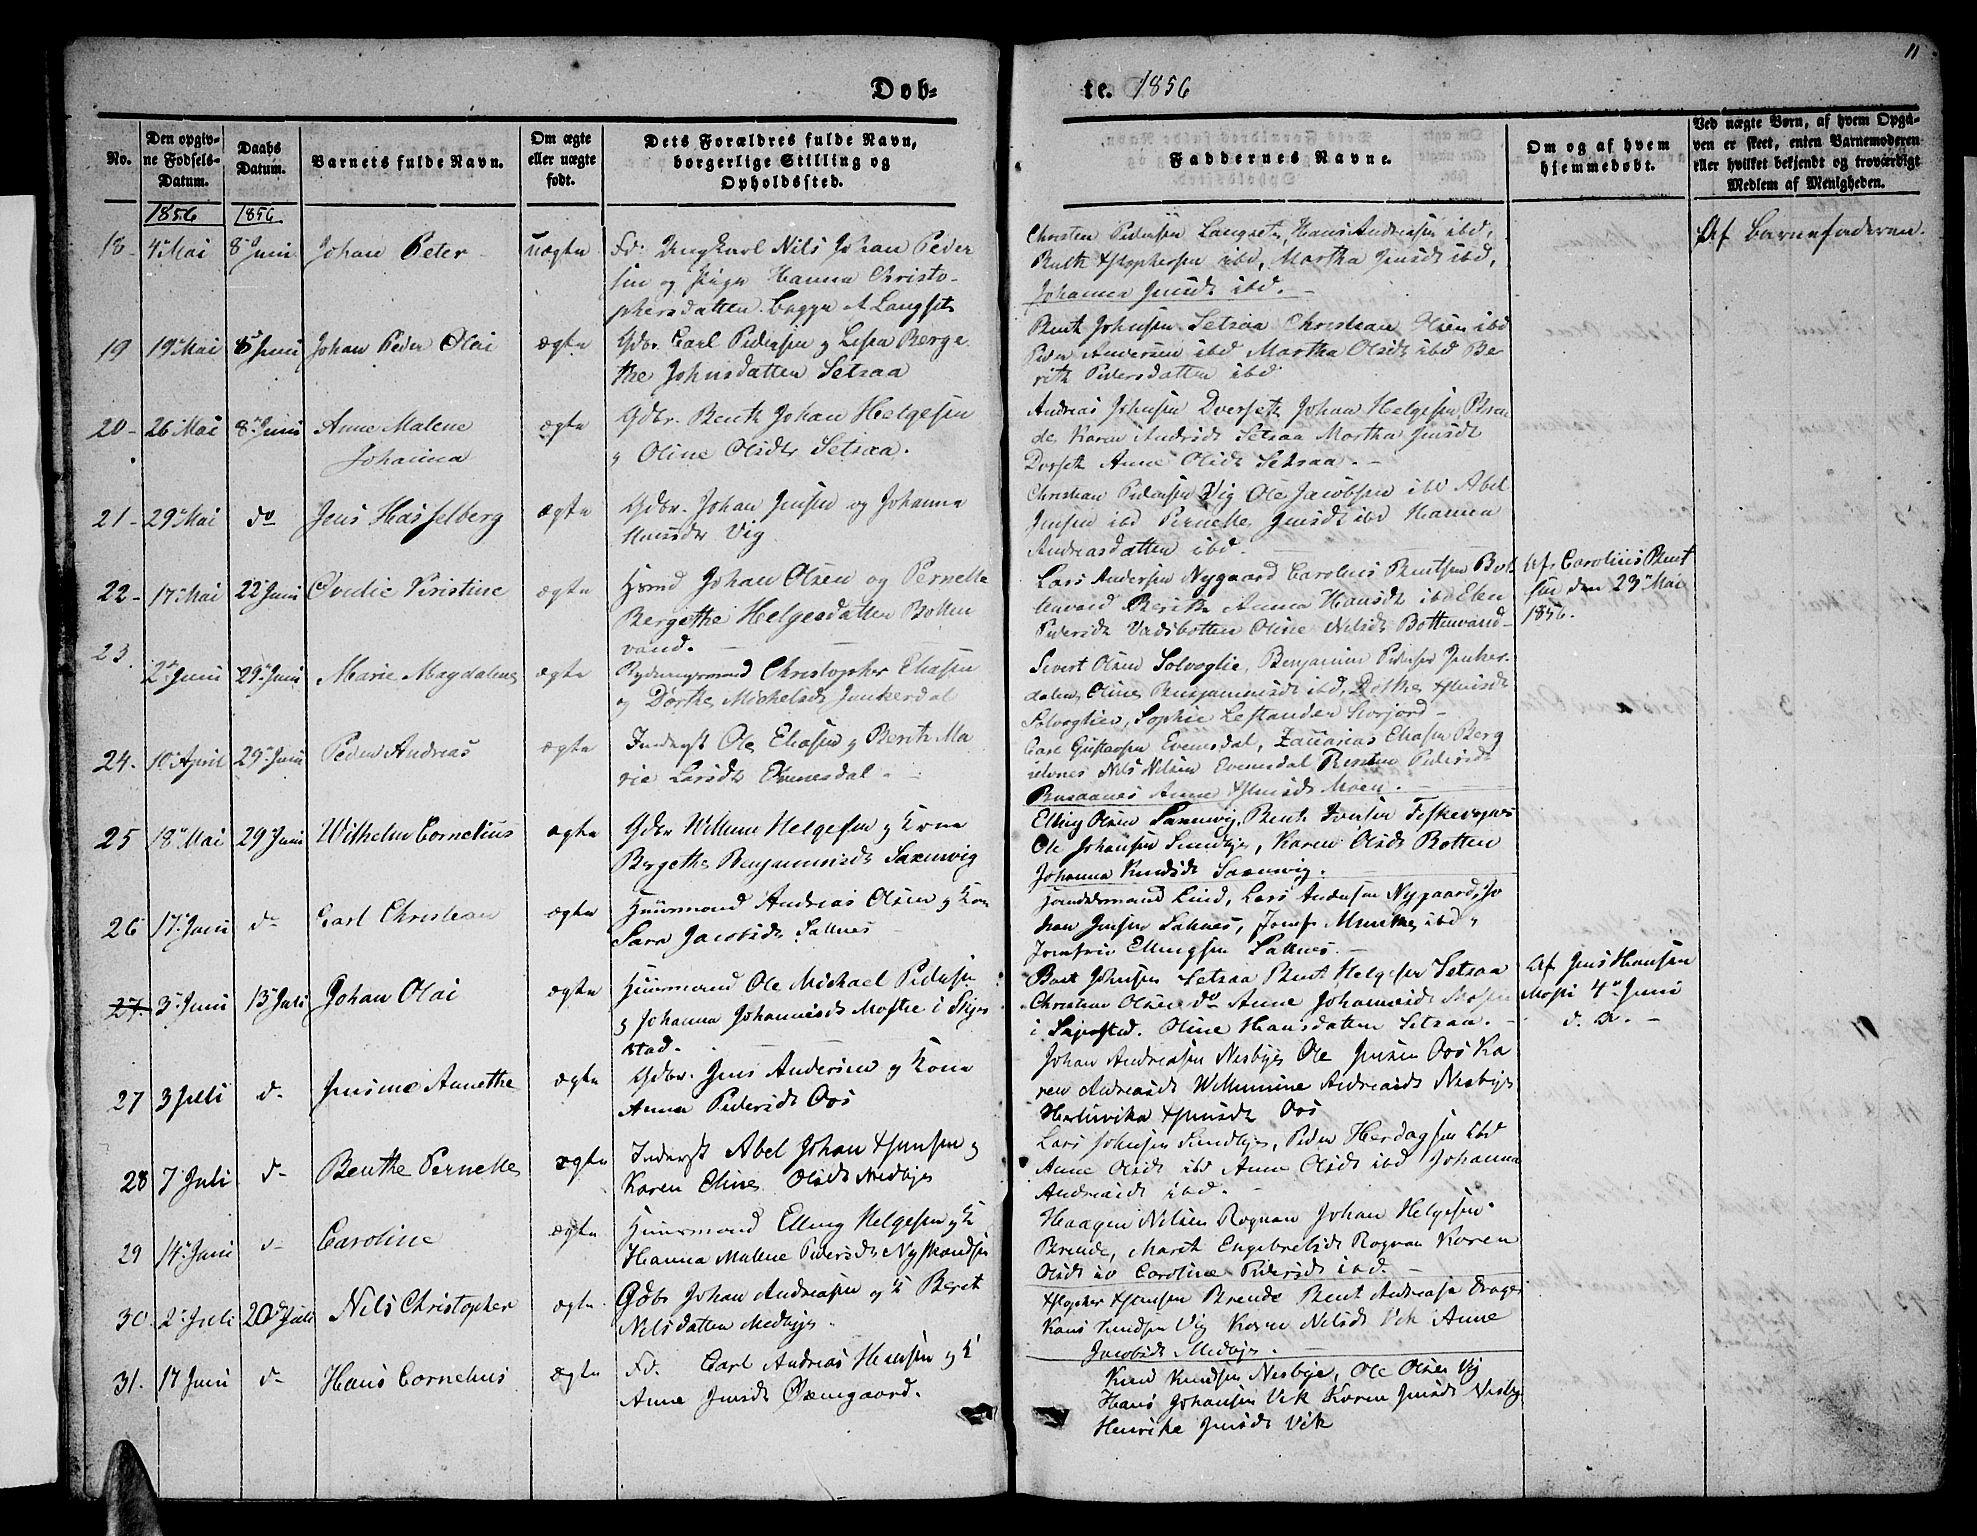 11
Døb-
te. 1856
No.
Den opgiv-
ne Fødsels-
Datum.
Daabs
Datum.
Barnets fulde Navn.
Om ægte
eller uægte
født.
Dets Forældres fulde Navn,
borgerlige Stilling og
Opholdssted.
Faddernes Navne.
Om og af hvem
hjemmedøbt.
Ved uægte Børn, af hvem Opgi-
ven er skeet, enten Barnemoderen
eller hvilket bekjendt og troværdigt
Medlem af Menigheden.
1856
1856
18- 4 Mai 8 Juni Johan Peter uægte
Fd. Ungkarl Nils Johan Peder
sen og Pige Hanna Christo-
phersdatten
Christen Pedersen Langset, Hans Andreasen ibd,
ibd, Martha Jensdt ibd,
Johanna Jensdt ibd.
Af Barnefaderen
19 19 Mai 8 Juni Johan Peder Olai ægte
Gdbr. Carl Pedersen og Berge
the Johnsdatten Setsaa
Bent Johnsen Setsaa Christian Olsen ibd
Peder Andersen ibd Martha Olsdt ibd Be
rith Pedersdatten ibd
20- 26 Mai 8 Juni Anne Malene
Johanna ægte
Gdbr. Benth Johan Helgesen
og Oline Olsdtr Setsaa.
Andreas Johnsen Dverset Johan Helgesen Bren
de, Karen Andrsdt Setsaa Martha Jensdt
Anne Olsdt Setsaa.
21- 29 Mai do Jens Hasselberg ægte
Gdbr. Johan Jensen og Johanna
Hansdtr Vig
Christian Pedersen Vig Ole Jacobsen ibd Abel
Jensen ibd Pernelle Jensdt ibd Hanna
Andreasdatten ibd.
22- 17 Mai 22 Juni Ovedie Kristine ægte
Johan Olsen og Pernelle
Bergethe Helgesdatten Botten
vand.
Lars Andersen Nygaard Carolius Bentsen Bot
tenvand Anna Hansdt ibd Elen
Pedersdt Oline Nilsdt Bottenvand
Af Carolius Bent
sen den 23 Mai
1856.
23. 2 Juni 29 Juni Marie Magdalene ægte
Rydningsmand Christopher Eliasen
og Dorthe Michelsdt Junkerdal
Sivert Olsen Solvaglie, Benjamin Pedersen Junker
dalen, Oline Benjaminsdt ibd,
Solvaglien, Sophie Storjord
24. 10 April 29 Juni Peder Andreas ægte
Inderst Ole Eliasen og Berith Ma
rie Larsdt Evenesdal.
Carl Gustavsen Evenesdal, Zacharias Eliasen Berg
ulvnes Nils Nilsen Evenesdal Pedersdt
Anne Moen.
25 18 Mai 29 Juni Wilhelm Cornelius ægte
Gdbr Willum Helgesen og Kone
Bergethe Benjaminsdt Saxenvig
Elling Olsen Saxenvig, Bent Jensen Fiskevognes
Ole Johansen Sundby, Karen Olsdt Botten
Johanna Knudsdt Saxenvig.
26 17 Juni do Carl Christian ægte
Huusmand Andreas Olsen og Kone
Sara Jacobsdt Saltnes
Handelsmand Lund, Lars Andersen Nygaard, Jo
han Jensen Saltnes, Jomf. ibd,
Ellingsen Saltnes.
27. 3 Juni 13 Juli Johan Olai ægte
Huusmand Ole Michael Pedersen
og Johanna Johannesdt Mosti i Skjer
stad.
Bent Johnsen Setsaa Bent Helgesen Setsaa
Christian Olsen do Anne Johannesdt
i Oline Hansdatten Setsaa.
Af Jens Hansen
Mosti 4 Juni
d. A.
27 3 Juli do Jensine Annethe ægte
Gdbr. Jens Andersen og Kone
Anna Pedersdt Oos
Johan Andreasen Nesbye Ole Jensen Oos Ka
ren Andreasdt Willumine Andreasdt Nesbye
Oos
28 7 Juli do Benthe Pernelle ægte
Inderst Abel Johan og
Karen Oline Olsdt Medbye
Lars Johnsen Sundbye, Peder Herdagsen ibd
Anne Olsdt ibd Anne Olsdt ibd Johanna
Andreasdt ibd.
29 14 Juni do Caroline ægte
Huusmand Elling Helgesen og K
Hanna Malene Pedersdt
Haagen Nilsen Rognan Johan Helgesen
Brende, Marit Engebretsdt Rognan Karen
Olsdt ibd Caroline Pedersdt ibd.
30. 2 Juli 20 Juli Nils Christopher ægte
Gdbr Johan Andreasen og K Berit
Nilsdatten Medbye.
Brende Bent Andreasen Drage
Hans Knudsen Vig Karen Nilsdt Vik Anne
Jacobsdt Medbye.
31. 17 Juni do Hans Cornelius ægte
Fd. Carl Andreas Hansen og K
Anne Jensdt
Knud Knudsen Nesbye, Ole Olsen Vig
Hans Johansen Vik Karen Jensdt Nesby
Henrike Jensdt Vik